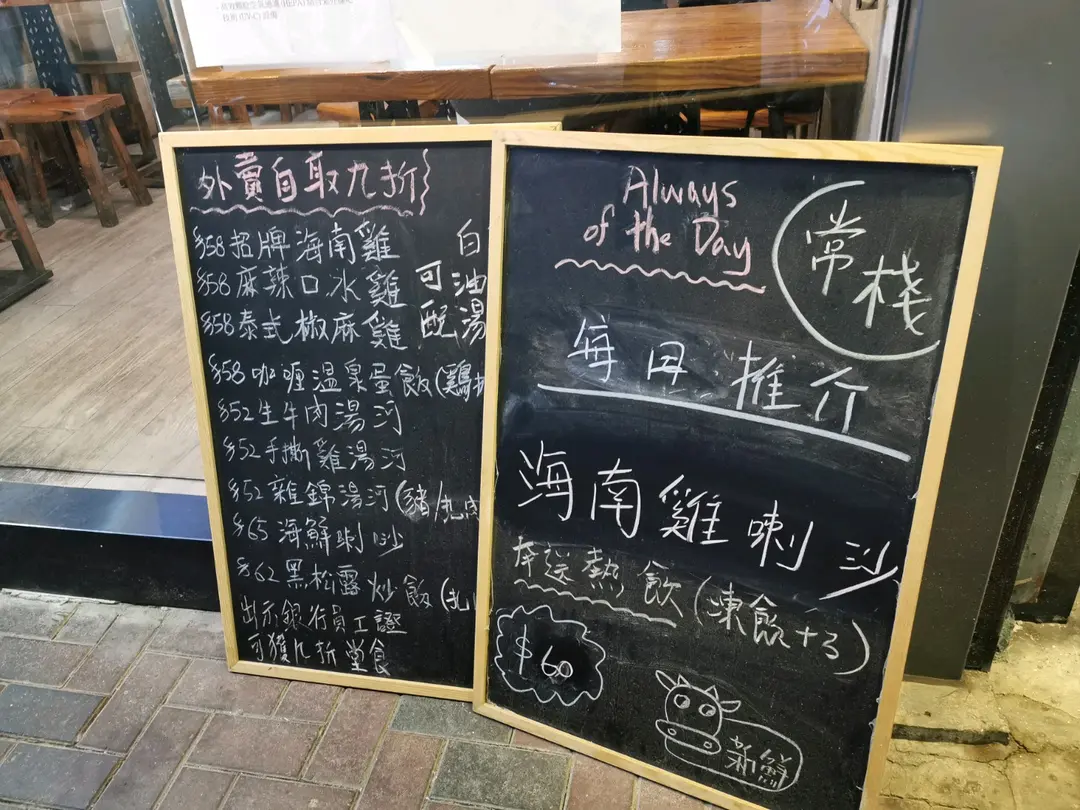 技術(UV-C)設備
外賣自取九折}
$58招牌海南雞
$58麻辣口水雞
$58泰式椒麻雞
可配
白
油
湯
$58咖喱溫泉蛋飯(鷄
$52生牛肉湯河
$52手撕雞湯河
$52雜錦湯河(豬/丸
$65海鮮喇沙
$62黑松露炒飯(
出示銀行員工證
可獲九折堂食
Always
of the Day
常棧
每日推介
海南雞喇沙
奔送熱飲(凍飲+3)
$60
新鮮